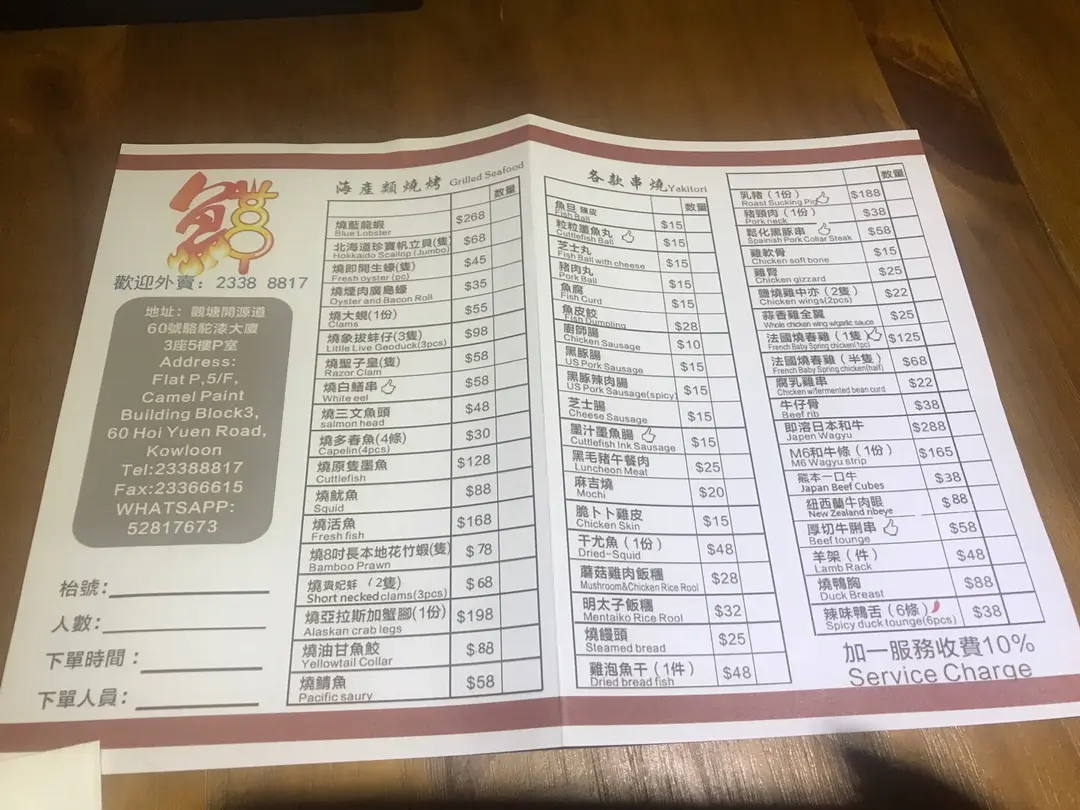 鱻
歡迎外賣：2338 8817
地址：觀塘開源道
60號駱駝漆大廈
3座5樓P室
Address:
Flat P,5/F,
Camel Paint
Building Block3,
60 Hoi Yuen Road,
Kowloon
Tel:23388817
Fax:23366615
WHATSAPP:
52817673
枱號:
人數:
下單時間：
下單人員：
海產類燒烤 Grilled Seafood
數量
燒藍龍蝦 $268
Blue Lobster
北海道珍寶帆立貝(隻) $68
Hokkaido Scallop (Jumbo)
燒即開生蠔(隻) $45
Fresh oyster (pc)
燒煙肉廣島蠔 $35
Oyster and Bacon Roll
燒大蜆(1份) $55
Clams
燒象拔蚌仔(3隻) $98
Little Live Geoduck(3pcs)
燒聖子皇(隻) $58
Razor Clam
燒白鱔串 $58
White eel
燒三文魚頭 $48
salmon head
燒多春魚(4條) $30
Capelin(4pcs)
燒原隻墨魚 $128
Cuttlefish
燒魷魚 $88
Squid
燒活魚 $168
Fresh fish
燒8吋長本地花竹蝦(隻) $78
Bamboo Prawn
燒貴妃蚌（2隻） $68
Short necked clams(3pcs)
燒亞拉斯加蟹腳(1份) $198
Alaskan crab legs
燒油甘魚鮫 $88
Yellowtail Collar
燒鯖魚 $58
Pacific saury
各款串燒 Yakitori
數量
魚旦 陳皮 $15
Fish Ball
粒粒墨魚丸 $15
Cuttlefish Ball
芝士丸 $15
Fish Ball with cheese
豬肉丸 $15
Pork Ball
魚腐 $15
Fish Curd
魚皮餃 $28
Fish Dumpling
廚師腸 $10
Chicken Sausage
黑豚腸 $15
US Pork Sausage
黑豚辣肉腸 $15
US Pork Sausage(spicy)
芝士腸 $15
Cheese Sausage
墨汁墨魚腸 $15
Cuttlefish Ink Sausage
黑毛豬午餐肉 $25
Luncheon Meat
麻吉燒 $20
Mochi
脆卜卜雞皮 $15
Chicken Skin
干尤魚（1份） $48
Dried-Squid
蘑菇雞肉飯糰 $28
Mushroom&Chicken Rice Rool
明太子飯糰 $32
Mentaiko Rice Rool
燒饅頭 $25
Steamed bread
雞泡魚干（1件） $48
Dried bread fish
數量
乳豬（1份） $188
Roast Sucking Pig
豬頸肉（1份） $38
Pork neck
鬆化黑豚串 $58
Spainish Pork Collar Steak
雞軟骨 $15
Chicken soft bone
雞腎 $25
Chicken gizzard
鹽燒雞中亦（2隻） $22
Chicken wings(2pcs)
蒜香雞全翼 $25
Whole chicken wing w/garlic sauce
法國燒春雞（1隻） $125
French Baby Spring chicken(1pc)
法國燒春雞（半隻） $68
French Baby Spring chicken(half)
腐乳雞串 $22
Chicken w/fermented bean curd
牛仔骨 $38
Beef rib
即溶日本和牛 $288
Japen Wagyu
M6和牛條（1份） $165
M6 Wagyu strip
熊本一口牛 $38
Japan Beef Cubes
紐西蘭牛肉眼 $88
New Zealand ribeye
厚切牛脷串 $58
Beef tounge
羊架（件） $48
Lamb Rack
燒鴨胸 $88
Duck Breast
辣味鴨舌（6條） $38
Spicy duck tounge(6pcs)
加一服務收費10%
Service Charge